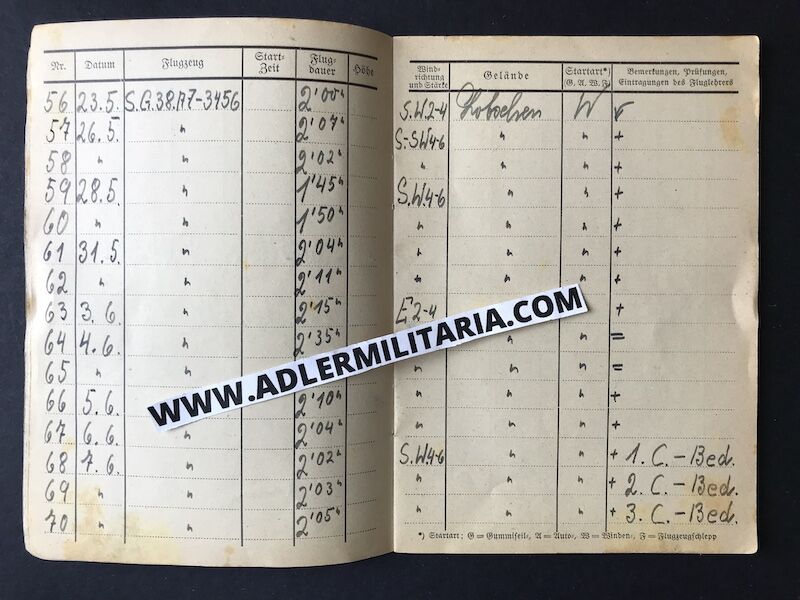 Nr. Datum Flugzeug Start-Zeit Flug-dauer Höhe
56 23.5. S.G.38.A7-3456 2'00"
57 26.5. " 2'07"
58 " " 2'02"
59 28.5. " 1'45"
60 " " 1'50"
61 31.5. " 2'04"
62 " " 2'11"
63 3.6. " 2'15"
64 4.6. " 2'35"
65 " "
66 5.6. " 2'10"
67 6.6. " 2'04"
68 7.6. " 2'02"
69 " " 2'03"
70 " " 2'05"
Wind-richtung und Stärke Gelände Startart*) (G. A. W. F) Bemerkungen, Prüfungen, Eintragungen des Fluglehrers
S.W.2-4 W
S.-SW4-6 " " +
" " " +
S.W.4-6 " " +
" " " +
" " " +
" " " +
E2-4 " +
" " =
" " " =
" " " +
" " " +
S.W.4-6 " " + 1. C. - Bed.
" " " + 2. C. - Bed.
" " " + 3. C. - Bed.
*) Startart: G = Gummiseil-, A = Auto-, W = Winden-, F = Flugzeugschlepp
WWW.ADLERMILITARIA.COM